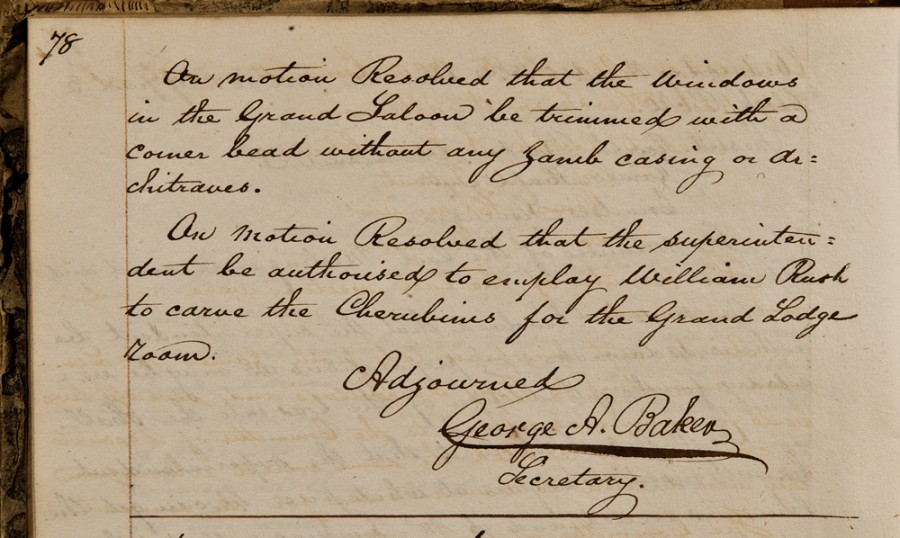 78
On motion Resolved that the windows
in the Grand Saloon be trimmed with a
corner bead without any Jamb casing or ar=
chitraves.
On motion Resolved that the superinten=
dent be authorised to employ William Rush
to carve the Cherubims for the Grand Lodge
room.
Adjourned
George A. Baker
Secretary.